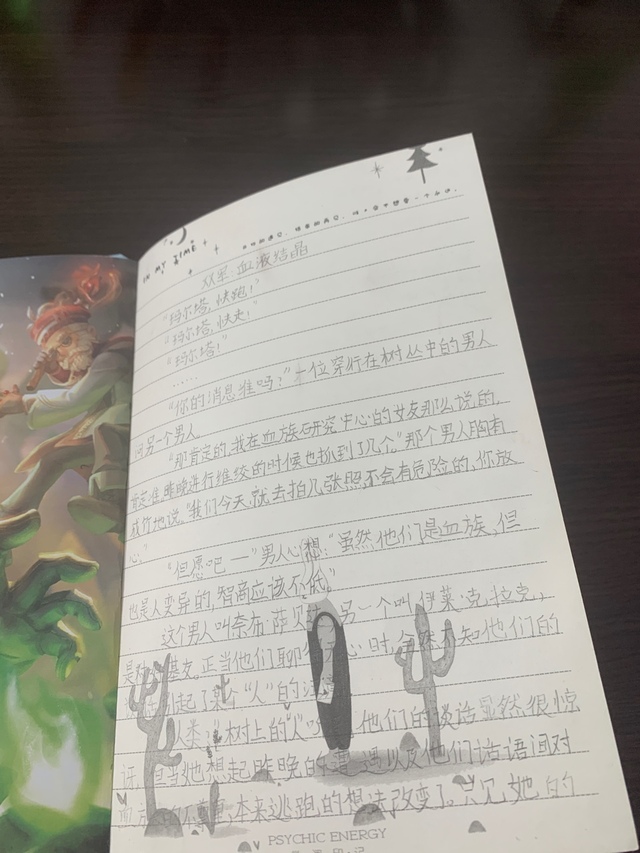 IN MY TIME
双采 血液结晶
"玛尔塔,快跑!"
"玛尔塔,快走!"
"玛尔塔!"
……
"你的消息准吗?"一位穿行在树丛中的男人
问另一个男人
"那肯定的,我在血族研究中心的女友那么说的,
昨晚进行维绞的时候也抓到了几个。"那个男人胸有
成竹地说。"我们今天就去拍几张照不会有危险的,你放
心。"
"但愿吧——"男人心想:"虽然他们是血族,但
也是人变异的,智商应该不低。"
这个男人叫奈布·萨贝 另一个叫伊莱·克拉克,
是 基友。正当他们聊 心时,全然不知他们的
起了 "人"的
类。"树上的"人" 他们的谈话显然很惊
讶,但当她想起昨晚的 遇以及他们话语间对
本来逃跑的想法改变了。只见她的
PSYCHIC ENERGY